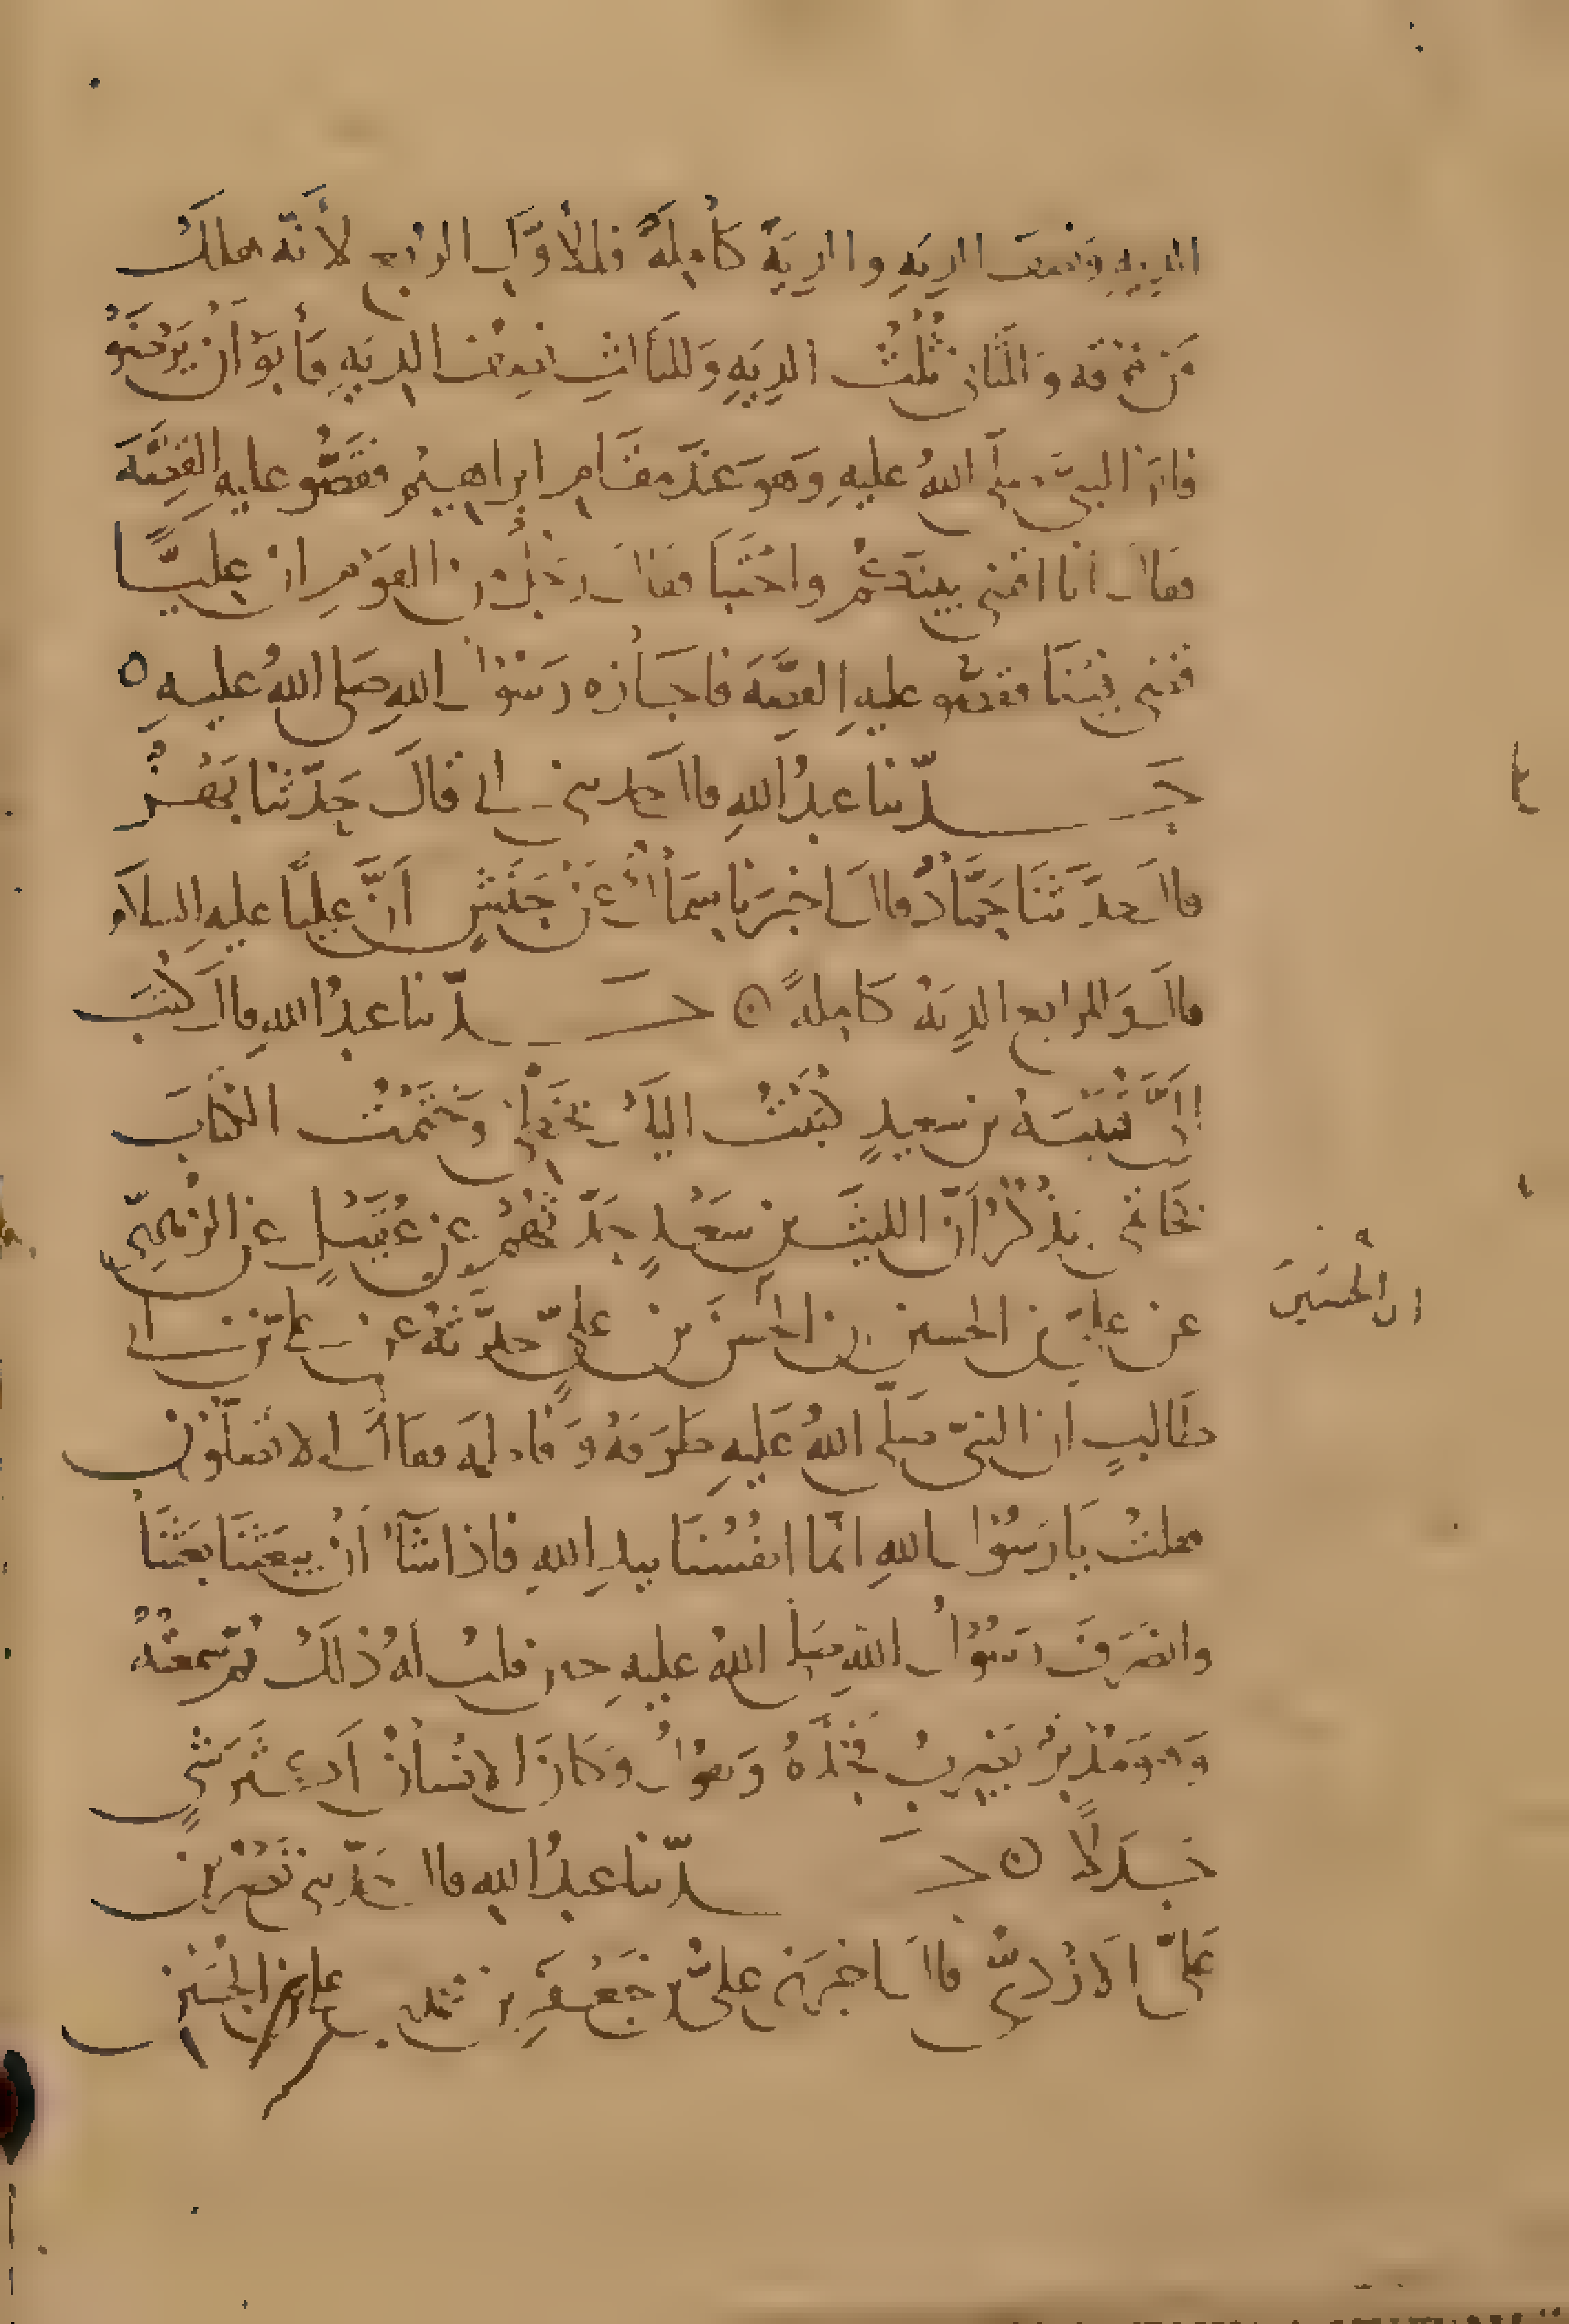 الديةِ ونصفَ الديةِ والديةَ كاملةً فللأوَّل الربع لأنّه هلك
مَن فوقه وللثاني ثُلُثُ الديةِ وللثالثِ نصفُ الديةِ فأبوْا أنْ يَرْضَوْ
فاتوْا النبيَّ صلّى اللهُ عليهِ وَهوَ عندَ مقَامِ ابراهيم فقَصُّو عليهِ القِصَّةَ
فقال انا اقضي بينكُم واحْتَبا فقال رجُلٌ من القَوْمِ ان عليًّا
قضى فينَا فقصُّو عليهِ القصَّةَ فاجَازه رَسُوْل اللهِ صلى اللهُ عليهِ ٥
حدّثنا عبدُاللهِ قال حدثني ابي قالَ حَدّثنا بَهْزٌ
قال حدَّثنَا حَمَّادٌ قال اخبرَنا سِمَاكٌ عَنْ حَنَشٍ أنَّ عليًّا عليهِ السلَام
قال وَللرابع الديَةُ كَاملةً ۞ حدّثنا عبدُاللهِ قال كتَبَ
إليَّ قُتَيْبَةُ بن سعيدٍ كَتَبْتُ اليكَ بخَطّي وَخَتَمْتُ الكتابَ
بخَاتمي يَذْكُرُ أنّ الليثَ بن سَعْدٍ حدَّثهُمْ عن عُقَيْلٍ عن الزُهْريّ
عن عليّ بن الحسين ان الحسَنَ بن عليٍّ حدَّثهُ عن علي بن ابي
ان الحسَينَ
طَالبٍ أن النبيّ صلّى اللهُ عَليهِ طرَقَهُ وَفاطمة فقال ألا تصلّون
فقلتُ يَا رَسُوْل اللهِ انّما انفُسُنَا بيدِ اللهِ فاذا شَآءَ أنْ يبعَثنَا بعَثنَا
وانصَرفَ رسُوْل اللهِ صلى اللهُ عليهِ حين قلتُ لهُ ذلكَ ثم سمعتُهُ
وَهوَ مُدْبِرٌ يَضْرِبُ فَخِذَهُ وَيقوْلُ وَكانَ الانسانُ أكثرَ شيءٍ
جَدَلًا ۞ حدّثنا عبدُاللهِ قال حَدّثني نَصْر بن
عَليّ الازْديُّ قال اخبرَني عليُّ بن جَعْفَرِ بن محمد بن علي بن الحُسَين